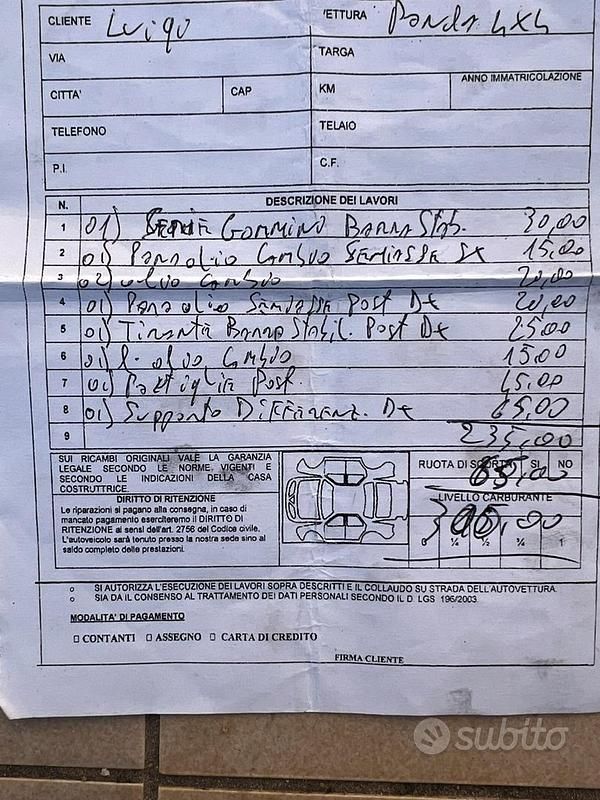 CLIENTE Luigo VETTURA Panda 4x4
VIA TARGA
CITTA' CAP KM ANNO IMMATRICOLAZIONE
TELEFONO TELAIO
P.I. C.F.
N. DESCRIZIONE DEI LAVORI
1 01) SERIE GOMMINO BARRA STAB. 30,00
2 01) PARAOLIO CAMBIO SEMIASSE SX 15,00
3 02) OLIO CAMBIO 20,00
4 01) PARAOLIO SEMIASSE POST DX 20,00
5 01) TIRANTE BARRA STABIL. POST DX 25,00
6 OLIO CAMBIO 15,00
7 01) PASTIGLIE POST. 45,00
8 01) SUPPORTO DIFFERENZ. DX 65,00
9 235,00
SUI RICAMBI ORIGINALI VALE LA GARANZIA
LEGALE SECONDO LE NORME VIGENTI E
SECONDO LE INDICAZIONI DELLA CASA
COSTRUTTRICE.
DIRITTO DI RITENZIONE
Le riparazioni si pagano alla consegna, in caso di
mancato pagamento eserciteremo il DIRITTO DI
RITENZIONE ai sensi dell'art. 2756 del Codice civile.
L'autoveicolo sarà tenuto presso la nostra sede sino al
saldo completo delle prestazioni.
RUOTA DI SCORTA SI NO
65,00
LIVELLO CARBURANTE
300,00
0 ¼ ½ ¾ 1
o SI AUTORIZZA L'ESECUZIONE DEI LAVORI SOPRA DESCRITTI E IL COLLAUDO SU STRADA DELL'AUTOVETTURA.
o SIA DA IL CONSENSO AL TRATTAMENTO DEI DATI PERSONALI SECONDO IL D. LGS 196/2003.
MODALITA' DI PAGAMENTO
□ CONTANTI □ ASSEGNO □ CARTA DI CREDITO
FIRMA CLIENTE
subito